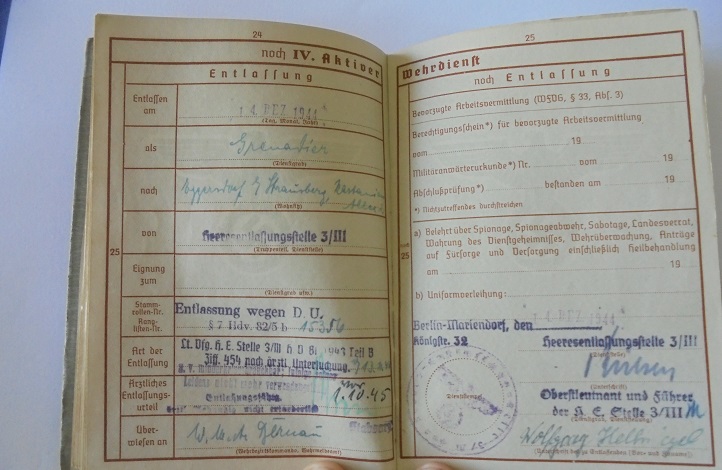 24
noch IV. Aktiver
Entlassung
Entlassen am
14. DEZ. 1944
(Tag, Monat, Jahr)
als
Grenadier
(Dienstgrad)
nach
Eggersdorf b/ Strausberg,
(Wohnsitz)
von
Heeresentlassungsstelle 3/III
(Truppenteil, Dienststelle)
25
Eignung zum
(Dienstgrad usw.)
Stamm-
rollen-Nr.
Rang-
listen-Nr.
Entlassung wegen D. U.
§ 7 Hdv. 82/5 b 15356
Art der
Entlassung
Lt. Vfg. H. E. Stelle 3/III H D B 1943 Teil B
Ziff. 454 nach ärztl Untersuchung
Ärztliches
Entlassungs-
urteil
1.10.45
Über-
wiesen an
W. M. A.
(Wehrbezirkskommando, Wehrmeldeamt)
25
Wehrdienst
noch Entlassung
Bevorzugte Arbeitsvermittlung (WFVG, § 33, Abs. 3)
Berechtigungsschein*) für bevorzugte Arbeitsvermittlung
vom 19
Militäranwärterurkunde*) Nr. vom 19
Abschlußprüfung*) bestanden am 19
*) Nichtzutreffendes durchstreichen
a) Belehrt über Spionage, Spionageabwehr, Sabotage, Landesverrat,
Wahrung des Dienstgeheimnisses, Wehrüberwachung, Anträge
auf Fürsorge und Versorgung einschließlich Heilbehandlung
am 19
b) Uniformverleihung:
14. DEZ. 1944
Berlin-Mariendorf, den
Königstr. 32
Heeresentlassungsstelle 3/III
(Dienststelle)
(Unterschrift)
Oberstleutnant und Führer
der H. E. Stelle 3/III
(Dienstgrad, Dienststellung)
Wolfgang